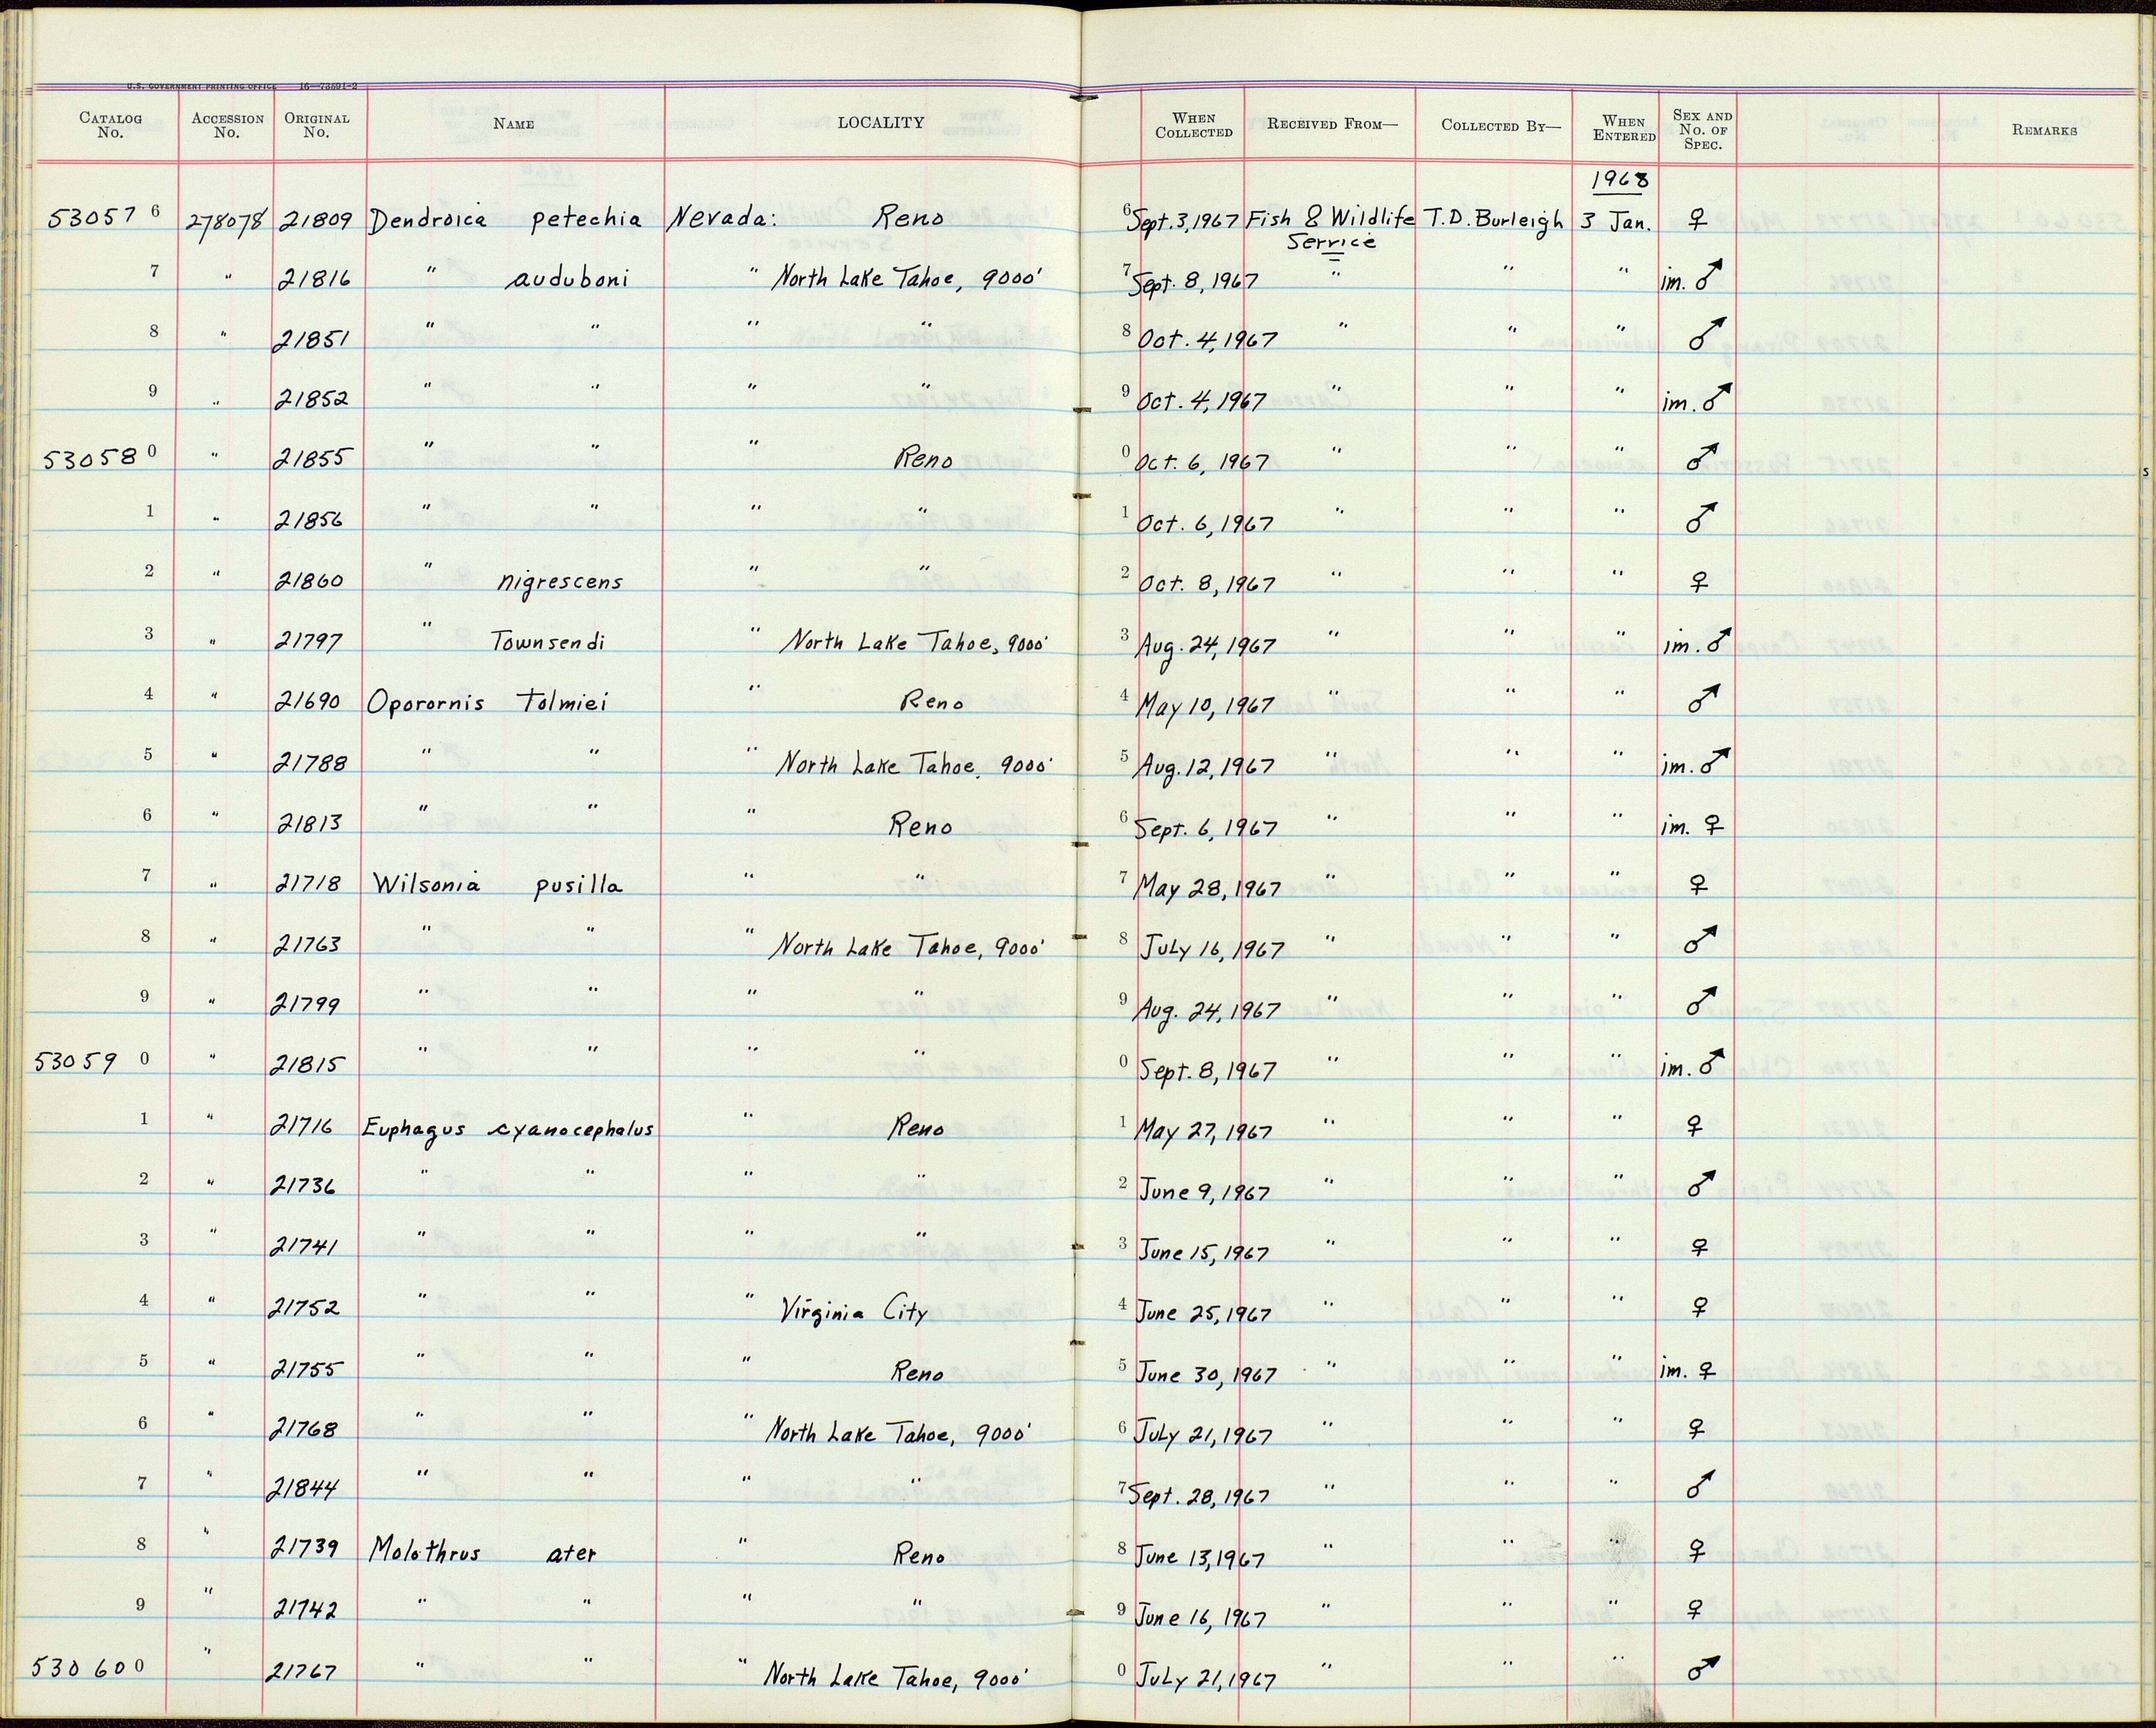 U.S. GOVERNMENT PRINTING OFFICE 16—73891-2
CATALOG No. ACCESSION No. ORIGINAL No. NAME LOCALITY WHEN COLLECTED RECEIVED FROM— COLLECTED BY— WHEN ENTERED SEX AND No. OF SPEC. REMARKS
1968
53057 6 278078 21809 Dendroica petechia Nevada: Reno 6 Sept. 3, 1967 Fish & Wildlife Service T.D. Burleigh 3 Jan. ♀
7 " 21816 " auduboni " North Lake Tahoe, 9000' 7 Sept. 8, 1967 " " " im. ♂
8 " 21851 " " " " 8 Oct. 4, 1967 " " " ♂
9 " 21852 " " " " 9 Oct. 4, 1967 " " " im. ♂
53058 0 " 21855 " " " Reno 0 Oct. 6, 1967 " " " ♂
1 " 21856 " " " " 1 Oct. 6, 1967 " " " ♂
2 " 21860 " nigrescens " " 2 Oct. 8, 1967 " " " ♀
3 " 21797 " Townsendi " North Lake Tahoe, 9000' 3 Aug. 24, 1967 " " " im. ♂
4 " 21690 Oporornis tolmiei " Reno 4 May 10, 1967 " " " ♂
5 " 21788 " " " North Lake Tahoe, 9000' 5 Aug. 12, 1967 " " " im. ♂
6 " 21813 " " " Reno 6 Sept. 6, 1967 " " " im. ♀
7 " 21718 Wilsonia pusilla " " 7 May 28, 1967 " " " ♀
8 " 21763 " " " North Lake Tahoe, 9000' 8 July 16, 1967 " " " ♂
9 " 21799 " " " " 9 Aug. 24, 1967 " " " ♂
53059 0 " 21815 " " " " 0 Sept. 8, 1967 " " " im. ♂
1 " 21716 Euphagus cyanocephalus " Reno 1 May 27, 1967 " " " ♀
2 " 21736 " " " " 2 June 9, 1967 " " " ♂
3 " 21741 " " " " 3 June 15, 1967 " " " ♀
4 " 21752 " " " Virginia City 4 June 25, 1967 " " " ♀
5 " 21755 " " " Reno 5 June 30, 1967 " " " im. ♀
6 " 21768 " " " North Lake Tahoe, 9000' 6 July 21, 1967 " " " ♀
7 " 21844 " " " " 7 Sept. 28, 1967 " " " ♂
8 " 21739 Molothrus ater " Reno 8 June 13, 1967 " " " ♀
9 " 21742 " " " " 9 June 16, 1967 " " " ♀
53060 0 " 21767 " " " North Lake Tahoe, 9000' 0 July 21, 1967 " " " ♂